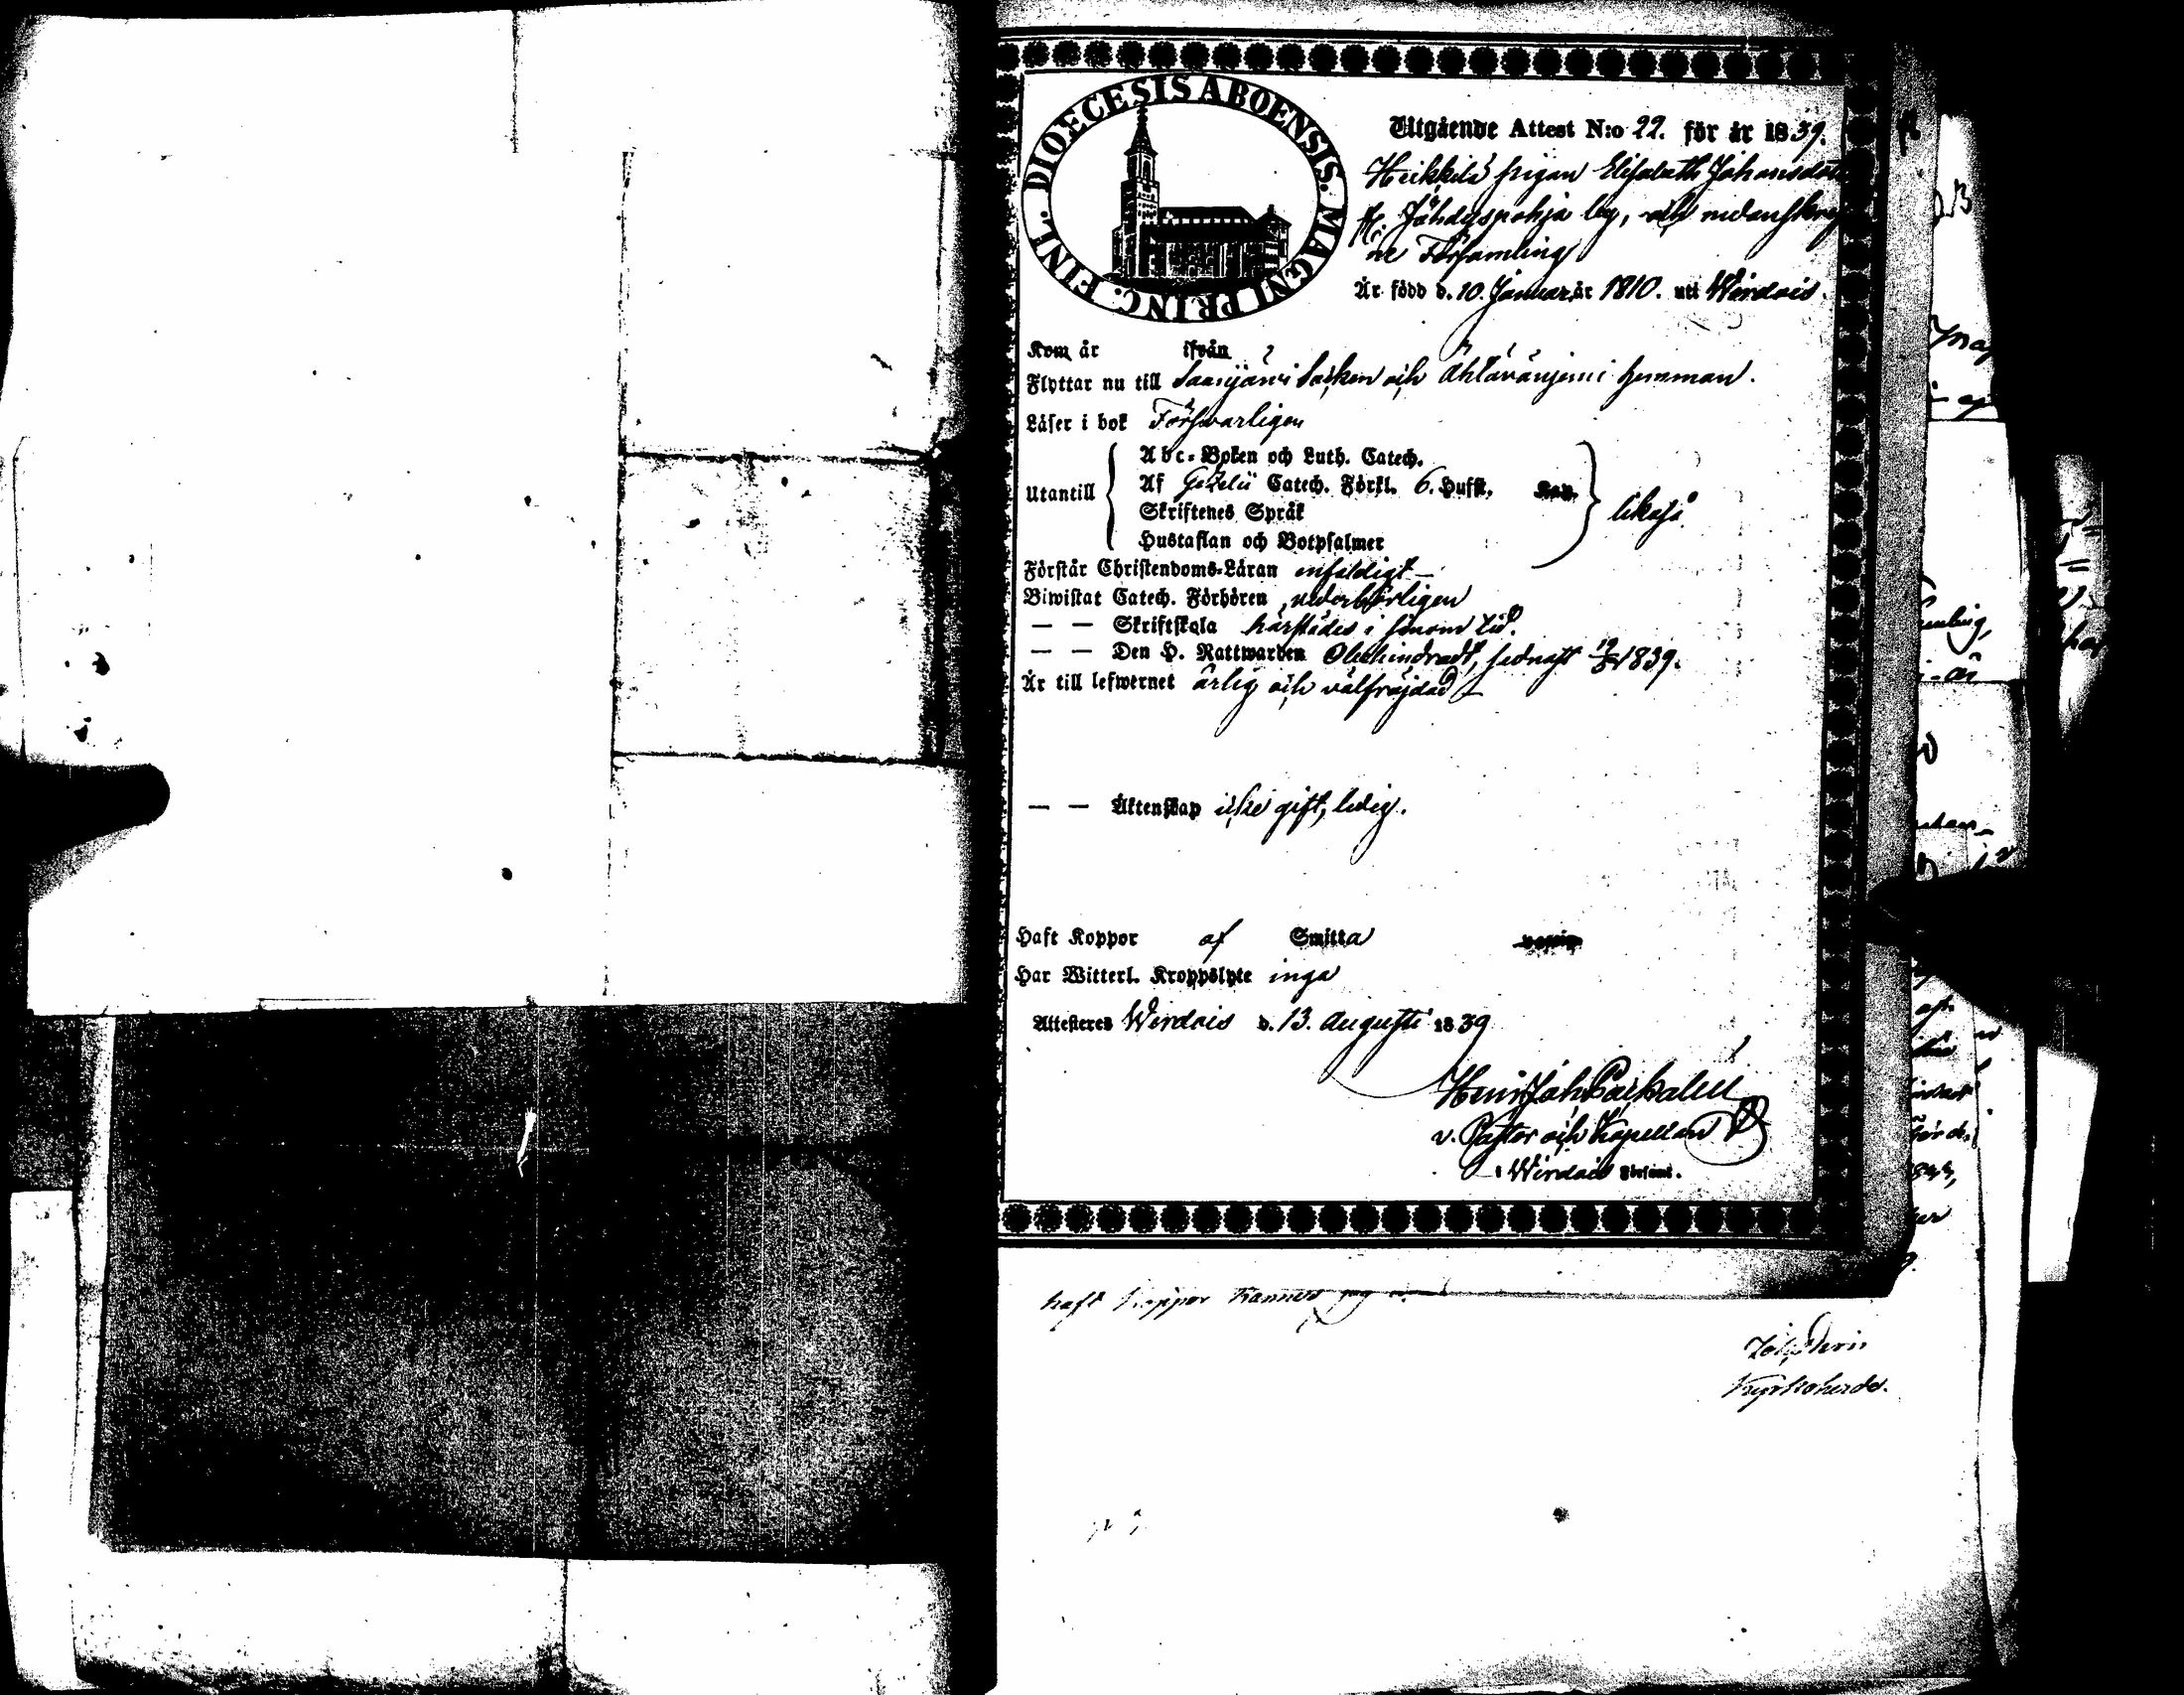 DIOECESIS ABOENSIS. MAGNI PRINC. FINL.
Utgående Attest N:o 22. för år 1839.
Heikkilä pigan Elisabeth Johansdott
fr. Jähdyspohja by, och nedanskref
ne Församling
Är född d. 10. Januar. år 1810. uti Wirdois.
Kom år ifrån
Flyttar nu till Saarijärvi Socken och Ahlavaniemi hemman.
Läser i bok Förswarligen
Utantill
Abc-Boken och Luth. Catech.
Af Gezelii Catech. Förkl. 6. Hufst. Kap.
Skriftenes Språk
Hustaflan och Botpsalmer
likaså
Förstår Christendoms-Läran enfaldigt
Biwistat Catech. Förhören vederbörligen
— — Skriftskola härstädes i sinom tid.
— — Den H. Nattwarden Obehindradt, sednast 1839.
Är till lefwernet ärlig och välfräjdad
— — Äktenskap icke gift, ledig.
Haft Koppor af Smitta
Har Witterl. Kroppslyte inga
Attesteres Wirdois d. 13. Augusti 1839
v. Pastor och Kapellan
i Wirdois Församl.
haft koppor kännes jag
Kyrkoherde.